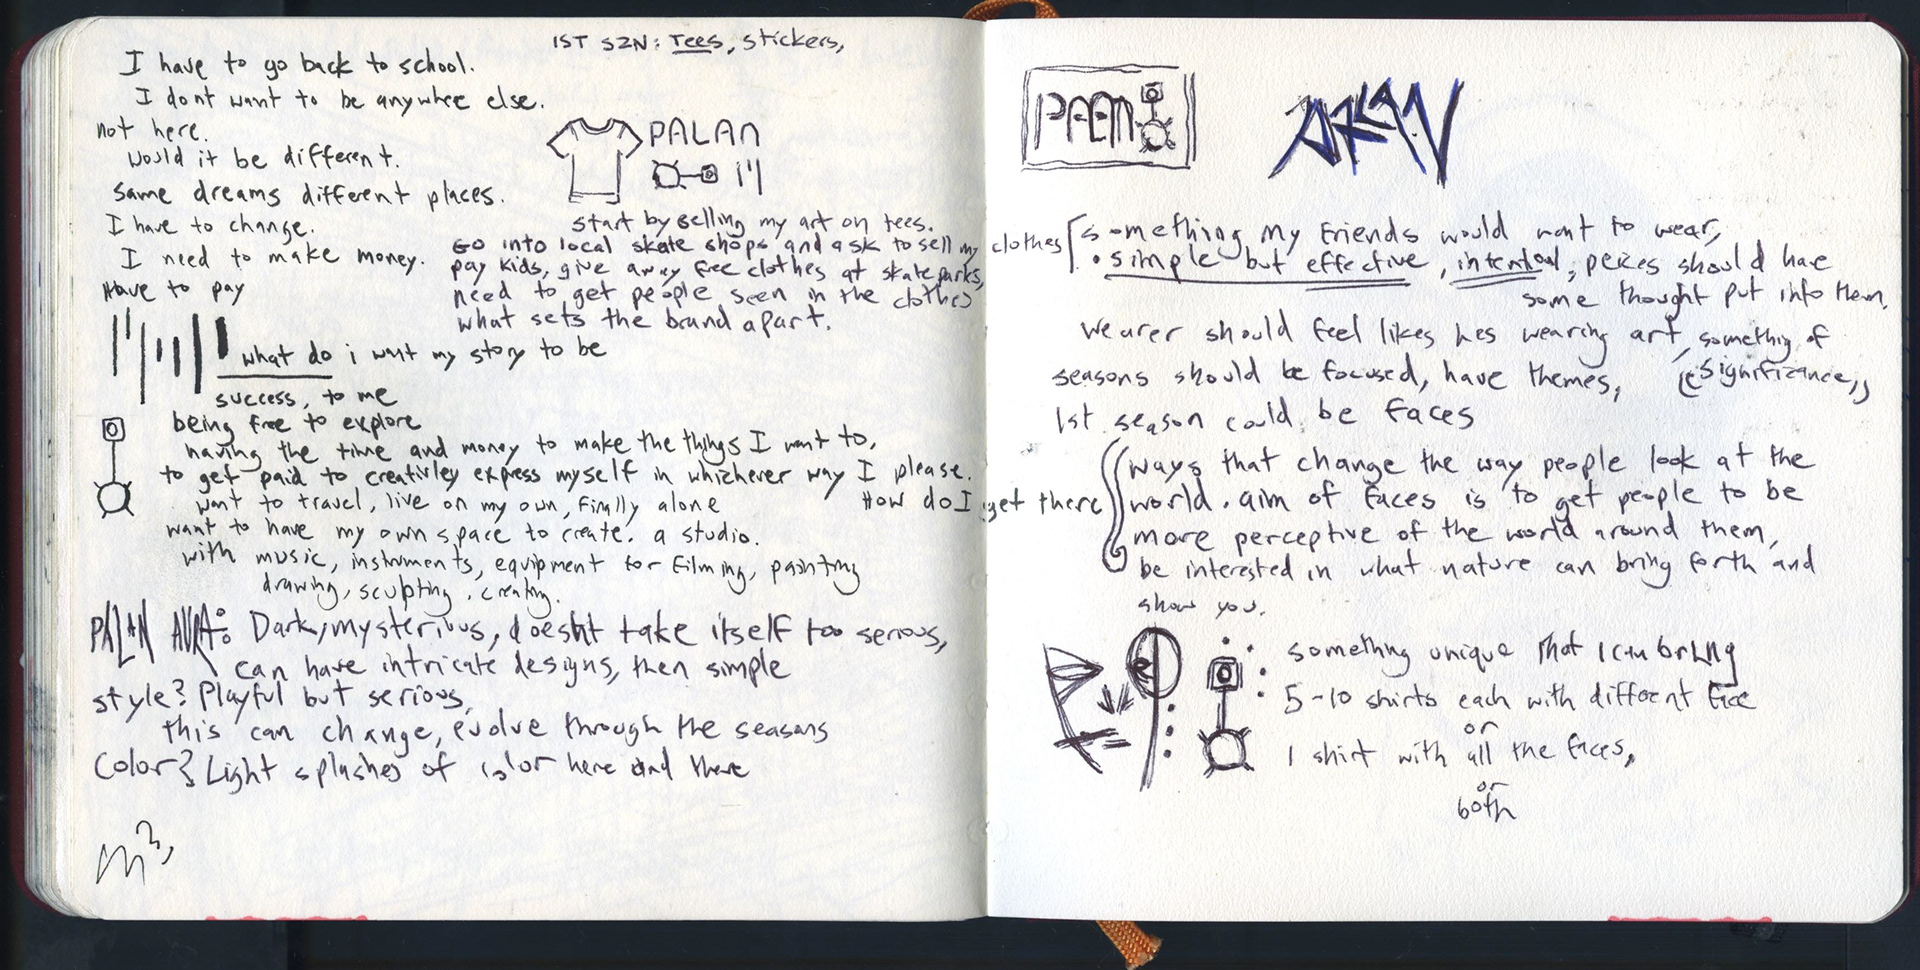 1ST SZN: Tees, stickers,
I have to go back to school.
I dont want to be anywhee else.
not here.
Would it be different.
same dreams different places.
I have to change.
I need to make money.
Have to pay
PALAN
start by selling my art on tees.
Go into local skate shops and ask to sell my clothes
pay kids, give away free clothes at skateparks,
need to get people seen in the clothes
what sets the brand apart.
what do i want my story to be
success, to me
being free to explore
having the time and money to make the things I want to,
to get paid to creativley express myself in whichever way I please.
want to travel, live on my own, finally alone
How do I get there
want to have my own space to create. a studio.
with music, instruments, equipment for filming, painting
drawing, sculpting, creating.
PALAN AURA: Dark, mysterious, doesnt take itself too serious,
can have intricate designs, then simple
style? Playful but serious,
this can change, evolve through the seasons
Color? Light splashes of color here and there
PALAN
something my friends would want to wear,
• simple but effective, intentonal, peices should have
some thought put into them,
wearer should feel likes hes wearing art, something of
significance,
seasons should be focused, have themes,
1st season could be faces
ways that change the way people look at the
world. aim of faces is to get people to be
more perceptive of the world around them,
be interested in what nature can bring forth and
show you.
something unique that I can bring
5-10 shirts each with different face
or
1 shirt with all the faces,
or
both